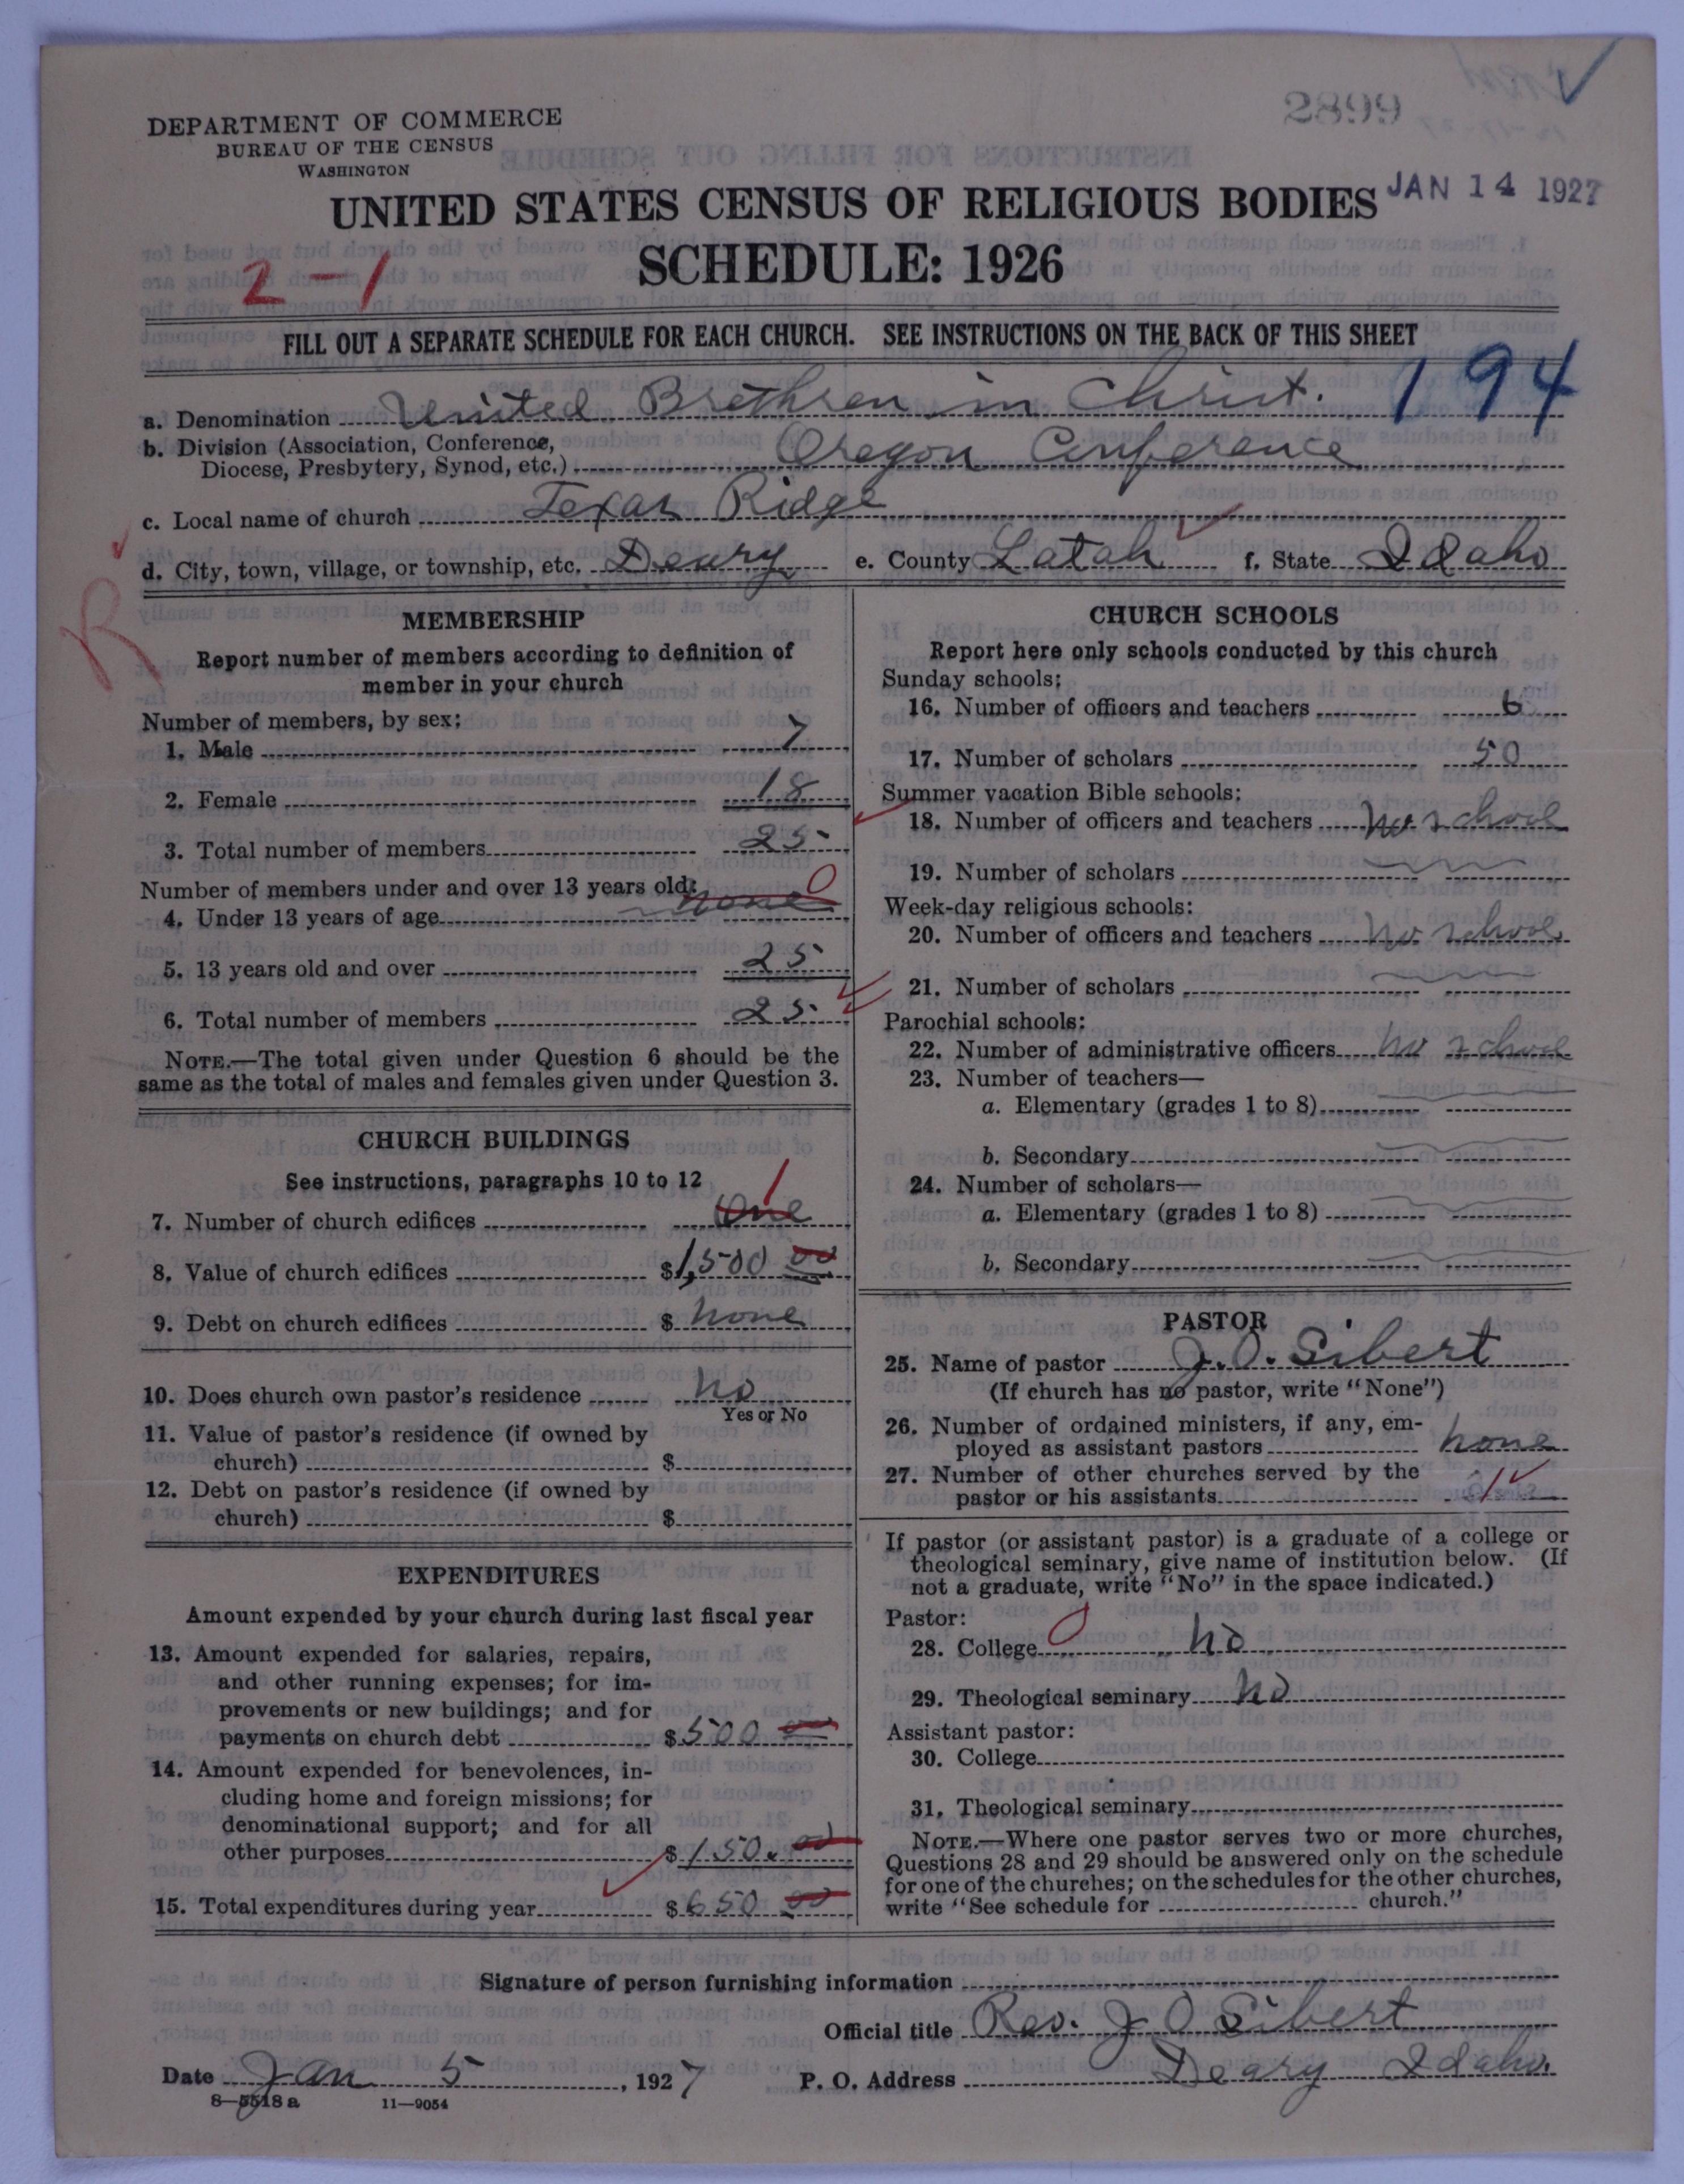 2899
DEPARTMENT OF COMMERCE
BUREAU OF THE CENSUS
WASHINGTON
UNITED STATES CENSUS OF RELIGIOUS BODIES
JAN 14 1927
SCHEDULE: 1926
2-1
FILL OUT A SEPARATE SCHEDULE FOR EACH CHURCH. SEE INSTRUCTIONS ON THE BACK OF THIS SHEET
194
a. Denomination United Brethren in Christ.
b. Division (Association, Conference,
Diocese, Presbytery, Synod, etc.) Oregon Conference
c. Local name of church Texas Ridge
d. City, town, village, or township, etc. Deary e. County Latah f. State Idaho
R
MEMBERSHIP
Report number of members according to definition of
member in your church
Number of members, by sex:
1. Male 7
2. Female 18
3. Total number of members 25
Number of members under and over 13 years old:
4. Under 13 years of age none 0
5. 13 years old and over 25
6. Total number of members 25
NOTE.—The total given under Question 6 should be the
same as the total of males and females given under Question 3.
CHURCH BUILDINGS
See instructions, paragraphs 10 to 12
7. Number of church edifices One 1
8. Value of church edifices $1,500 00
9. Debt on church edifices $ none
10. Does church own pastor's residence no
Yes or No
11. Value of pastor's residence (if owned by
church) $
12. Debt on pastor's residence (if owned by
church) $
EXPENDITURES
Amount expended by your church during last fiscal year
13. Amount expended for salaries, repairs,
and other running expenses; for im-
provements or new buildings; and for
payments on church debt $500 00
14. Amount expended for benevolences, in-
cluding home and foreign missions; for
denominational support; and for all
other purposes $150.00
15. Total expenditures during year $650 00
CHURCH SCHOOLS
Report here only schools conducted by this church
Sunday schools:
16. Number of officers and teachers 6
17. Number of scholars 50
Summer vacation Bible schools:
18. Number of officers and teachers no school
19. Number of scholars
Week-day religious schools:
20. Number of officers and teachers no school
21. Number of scholars
Parochial schools:
22. Number of administrative officers no school
23. Number of teachers—
a. Elementary (grades 1 to 8)
b. Secondary
24. Number of scholars—
a. Elementary (grades 1 to 8)
b. Secondary
PASTOR
25. Name of pastor J. O. Sibert
(If church has no pastor, write "None")
26. Number of ordained ministers, if any, em-
ployed as assistant pastors none
27. Number of other churches served by the
pastor or his assistants 1
If pastor (or assistant pastor) is a graduate of a college or
theological seminary, give name of institution below. (If
not a graduate, write "No" in the space indicated.)
Pastor:
28. College 0 no
29. Theological seminary no
Assistant pastor:
30. College
31. Theological seminary
NOTE.—Where one pastor serves two or more churches,
Questions 28 and 29 should be answered only on the schedule
for one of the churches; on the schedules for the other churches,
write "See schedule for church."
Signature of person furnishing information
Official title Rev. J O Sibert
Date Jan 5, 1927 P. O. Address Deary Idaho.
8—5518 a 11—9054